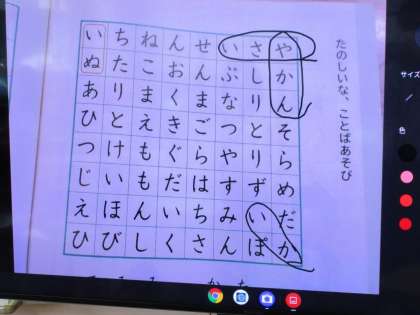 たのしいな、ことばあそび
いちねんせいさや
ぬたこおんぶしか
ありまくまなりん
ひとえきごつとそ
つけもぐらやりら
じいもだはすずめ
えほんいちみいだ
ひびしくさんぽか
サイズ
色